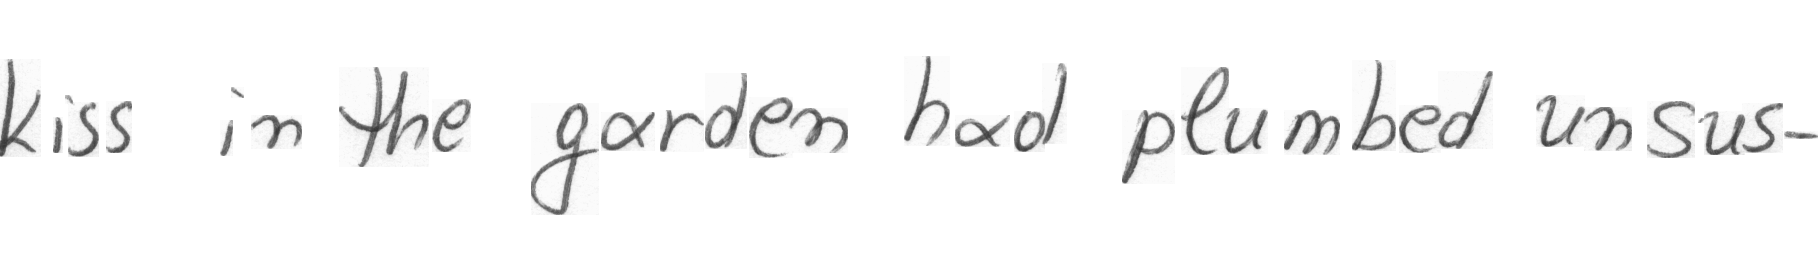 kiss in the garden had plumbed unsus-